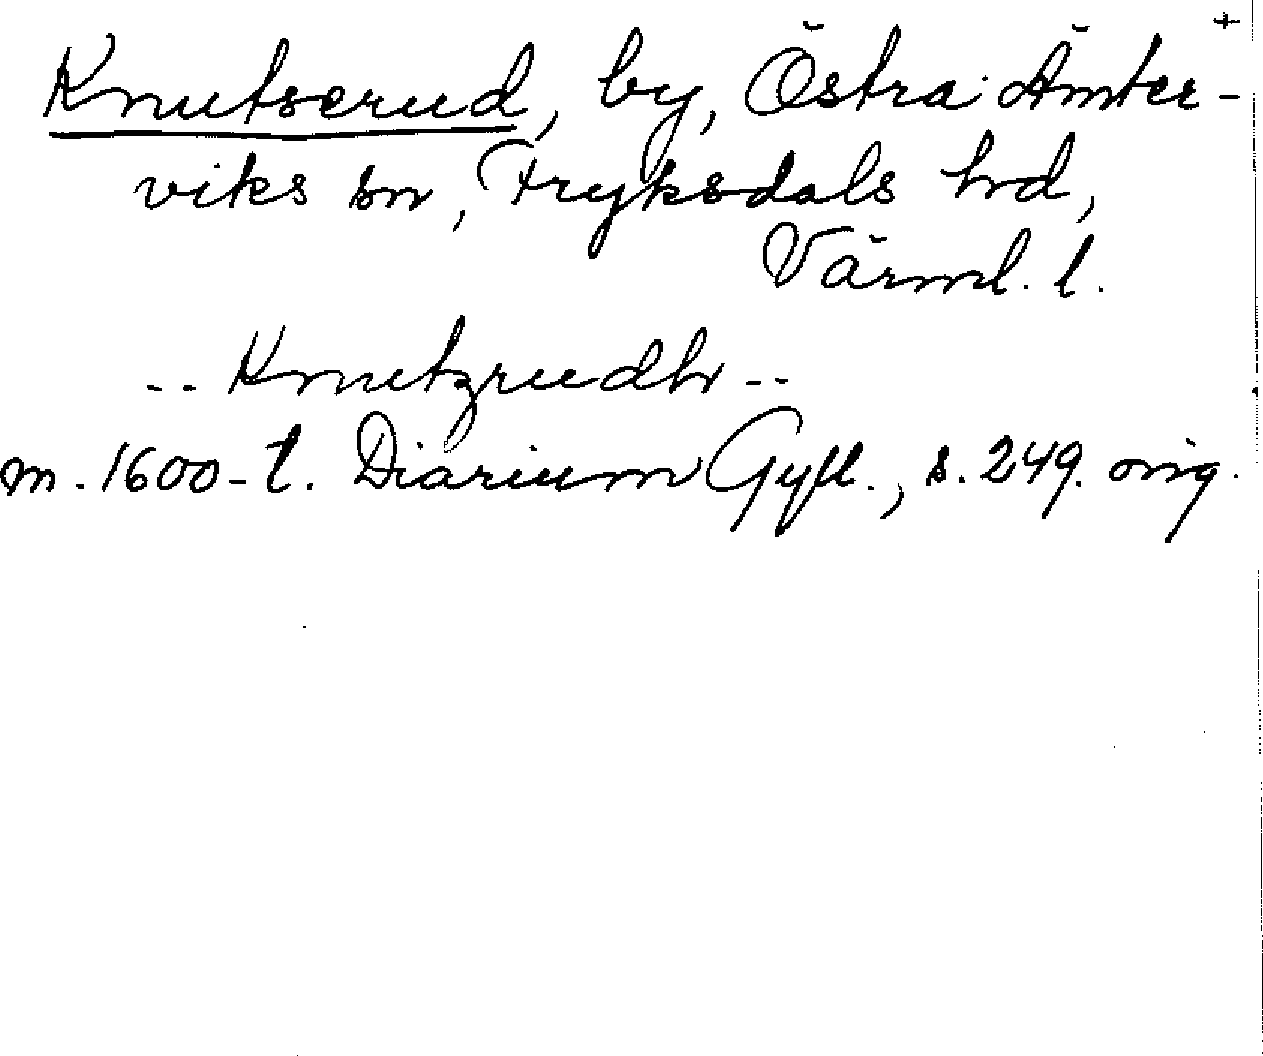 +
Knutserud, by, Östra Ämter-
viks sn, Fryksdals hrd,
Värml. l.
-- Knutzrudh --
m. 1600-t. Diarium Gyll., s. 249. orig.